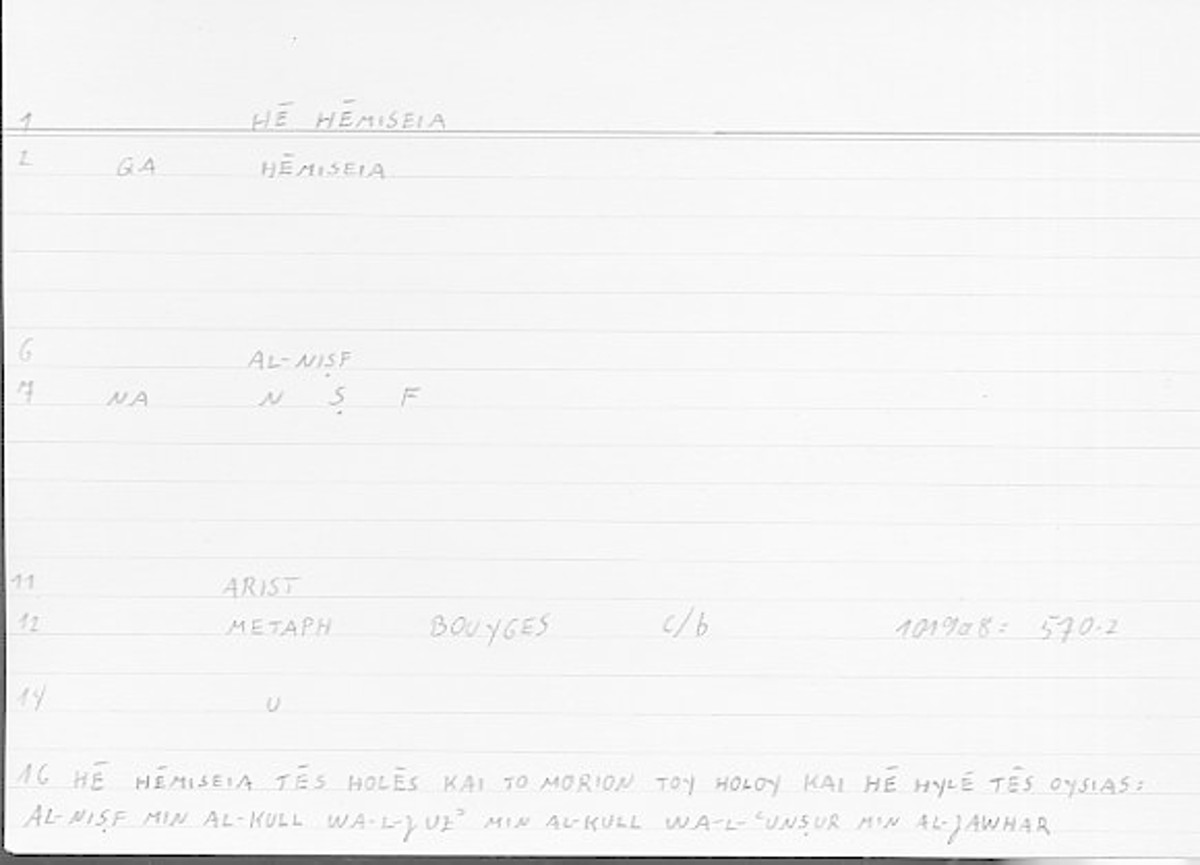 1 HĒ HĒMISEIA
2 GA HĒMISEIA
6 AL-NIṢF
7 NA N Ṣ F
11 ARIST
12 METAPH BOUYGES c/b 1019a8: 570.2
14 U
16 HĒ HĒMISEIA TĒS HOLĒS KAI TO MORION TOY HOLOY KAI HĒ HYLĒ TĒS OYSIAS:
AL-NIṢF MIN AL-KULL WA-L-ǦUZʾ MIN AL-KULL WA-L-ʿUNṢUR MIN AL-ǦAWHAR